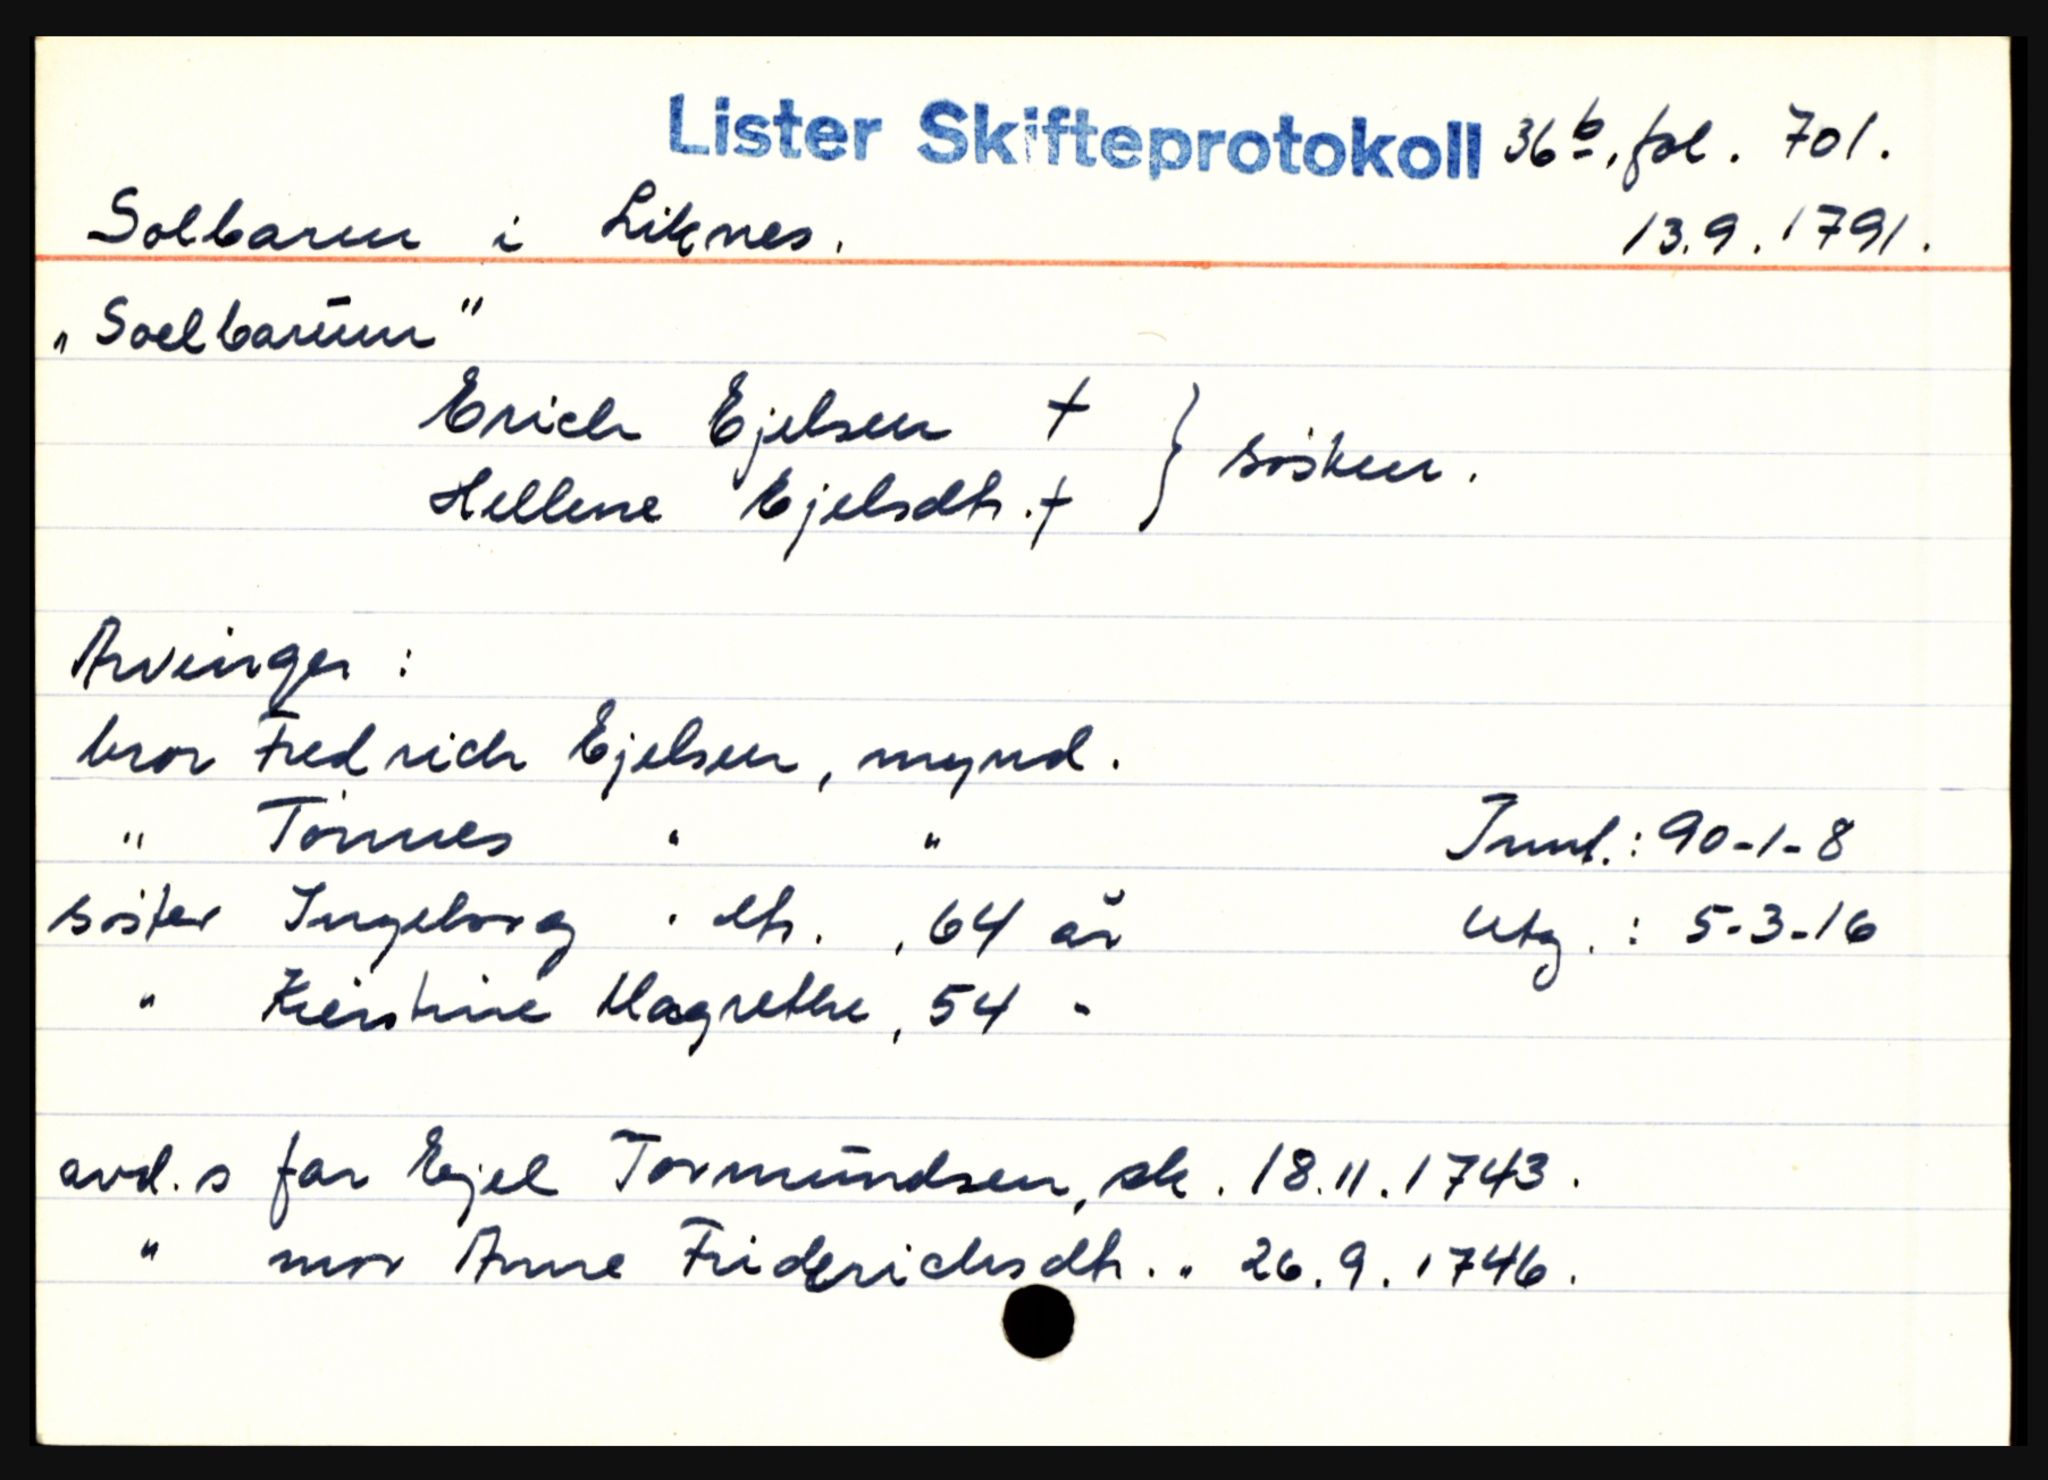 Lister Skifteprotokoll 36b, fol. 701.
Solbarm i Liknes. 13.9.1791.
"Soelbarum"
Erich Ejelsen †
Hellene Ejelsdtr. † } søsken.
Arvinger:
bror Fredrich Ejelsen, mynd.
" Tönnes " "
Innt.: 90-1-8
søster Ingeborg " dtr., 64 år
Utg.: 5-3-16
" Kierstine Magrethe, 54 "
avd.s far Ejel Tormundsen, sk. 18.11.1743.
" mor Anne Friderichsdtr. " 26.9.1746.